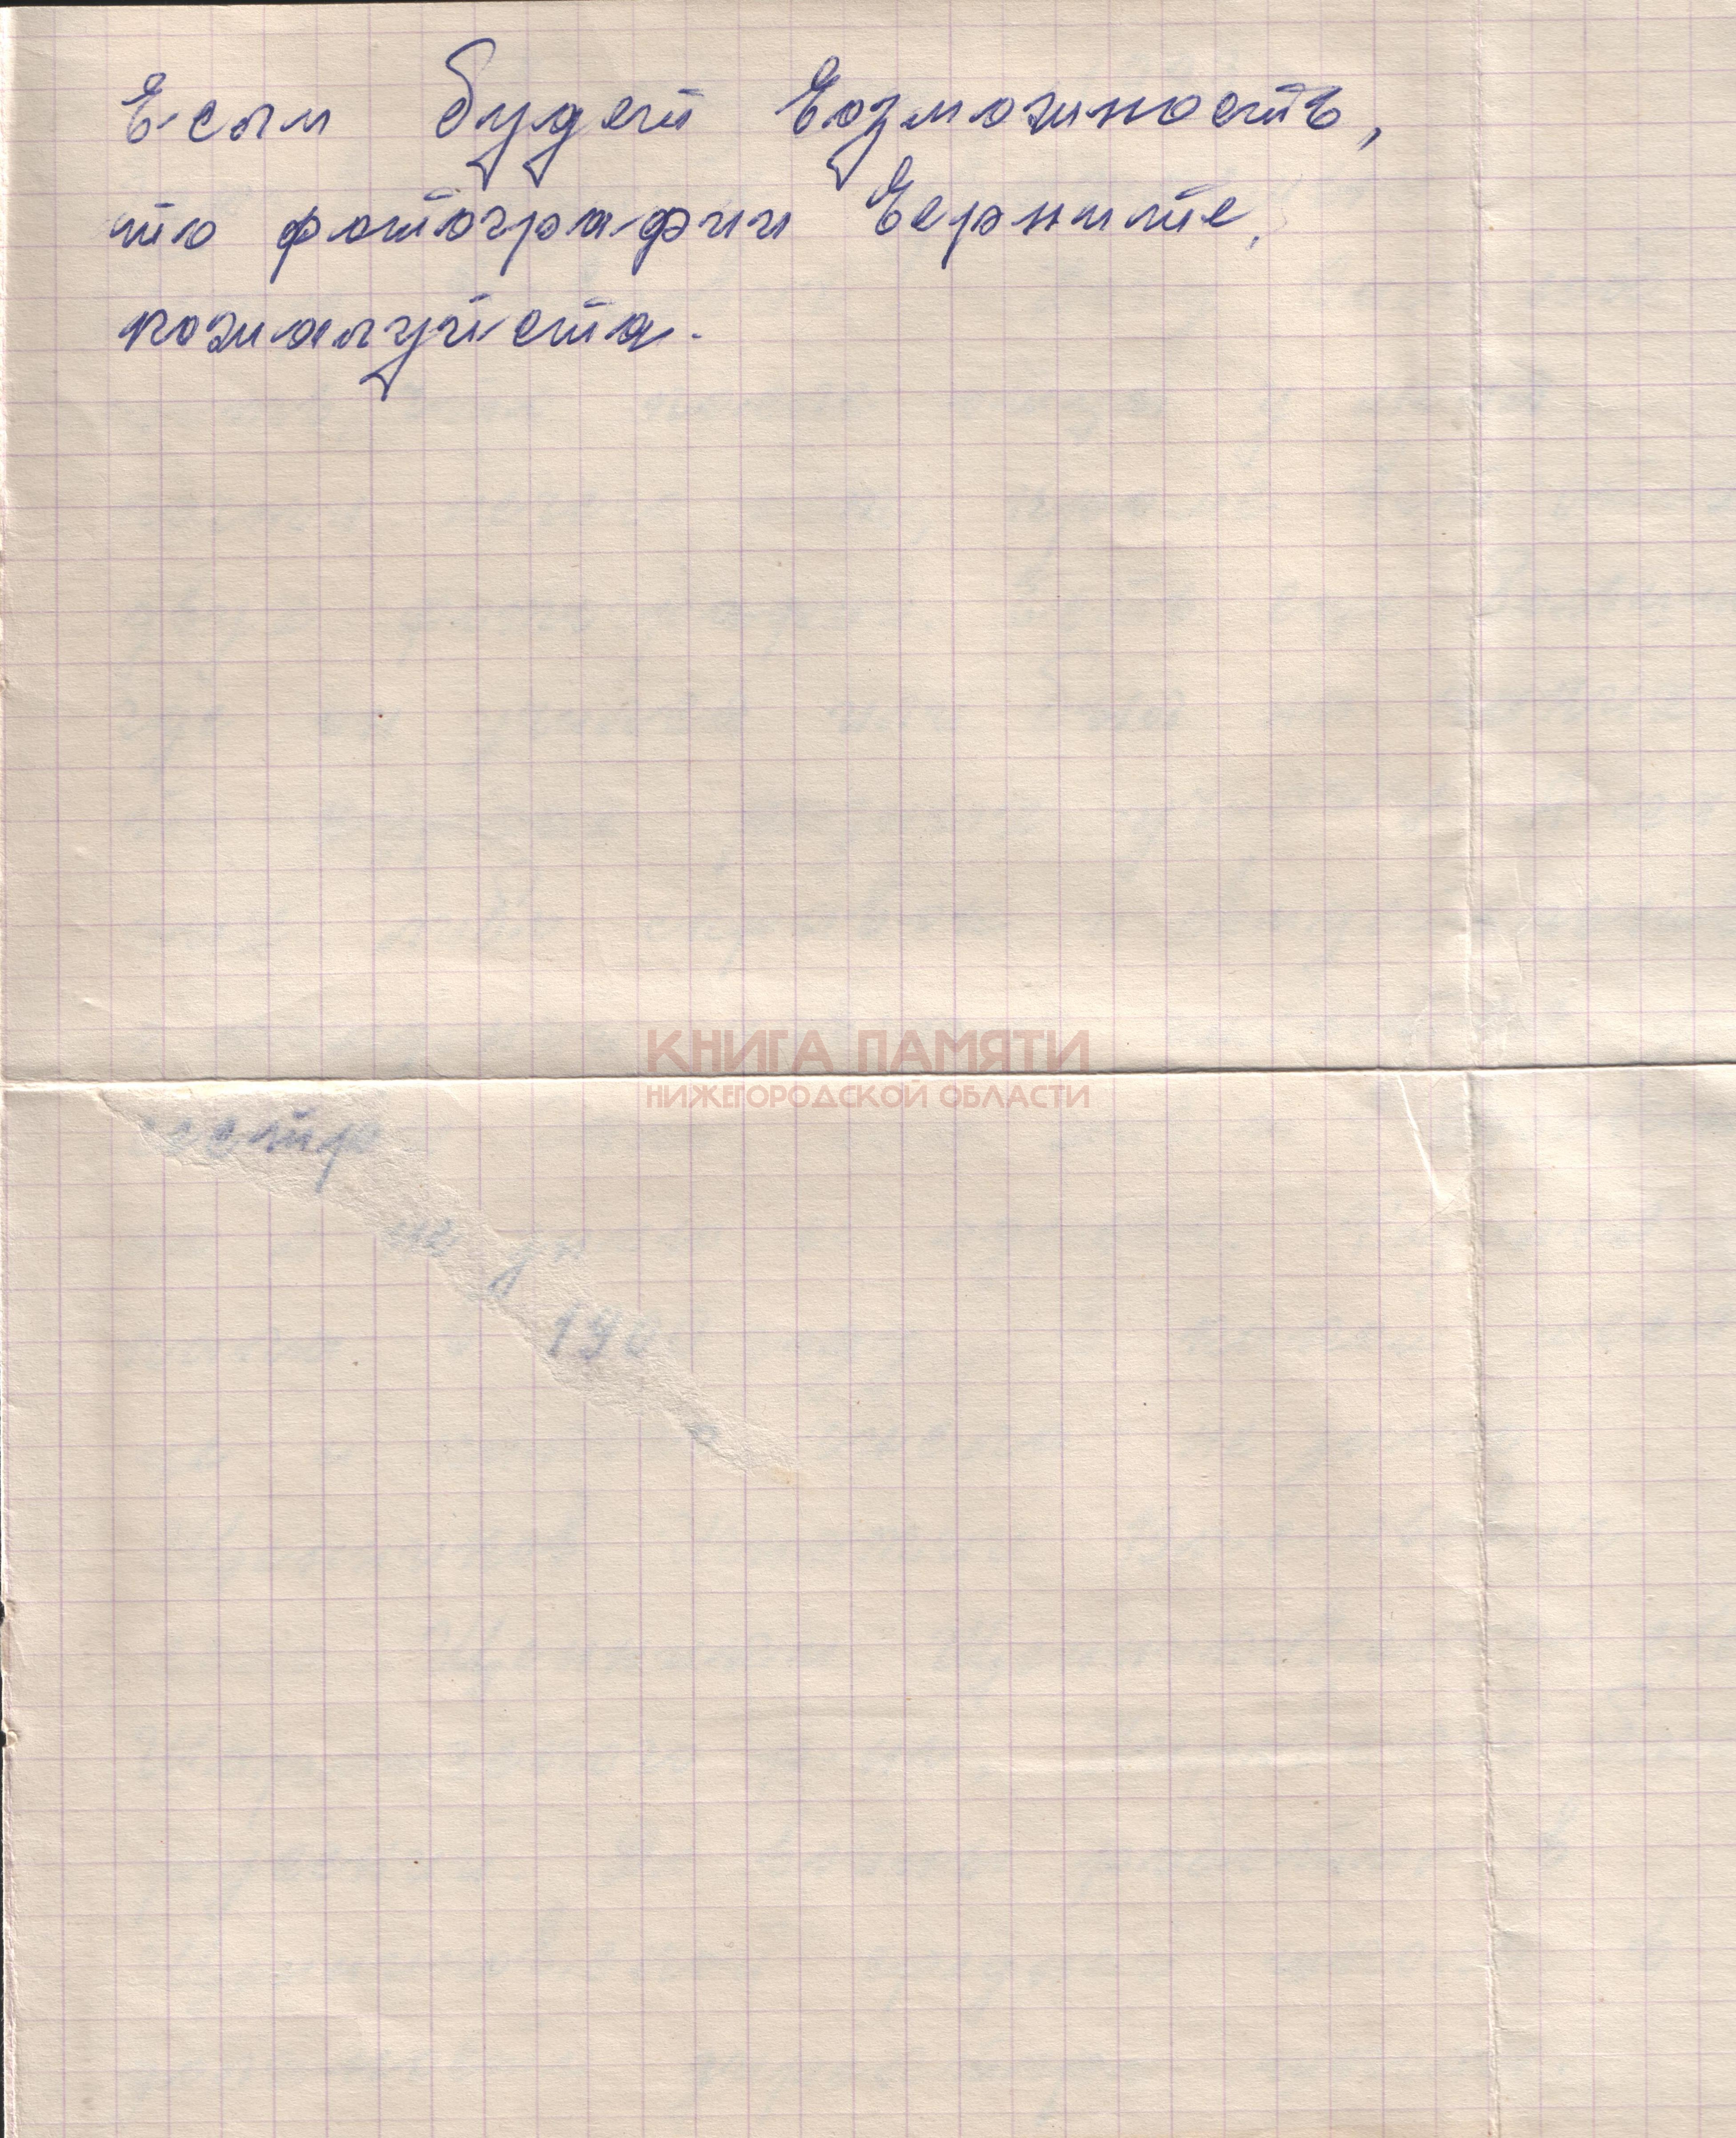 Если будет возможность,
то фотографии верните,
пожалуйста.
КНИГА ПАМЯТИ
НИЖЕГОРОДСКОЙ ОБЛАСТИ